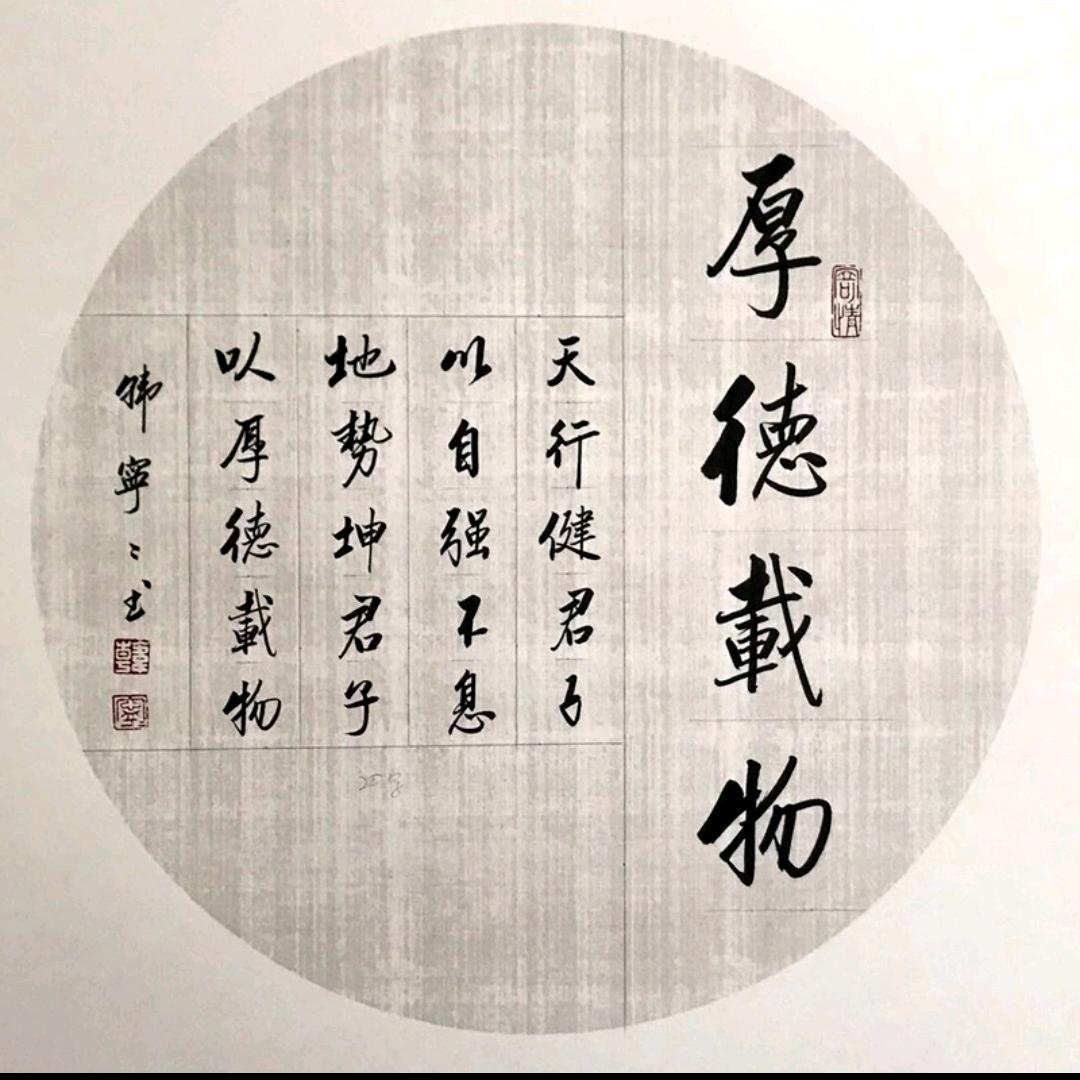 厚德載物
天行健君子
以自强不息
地勢坤君子
以厚德載物
韩寧〻书